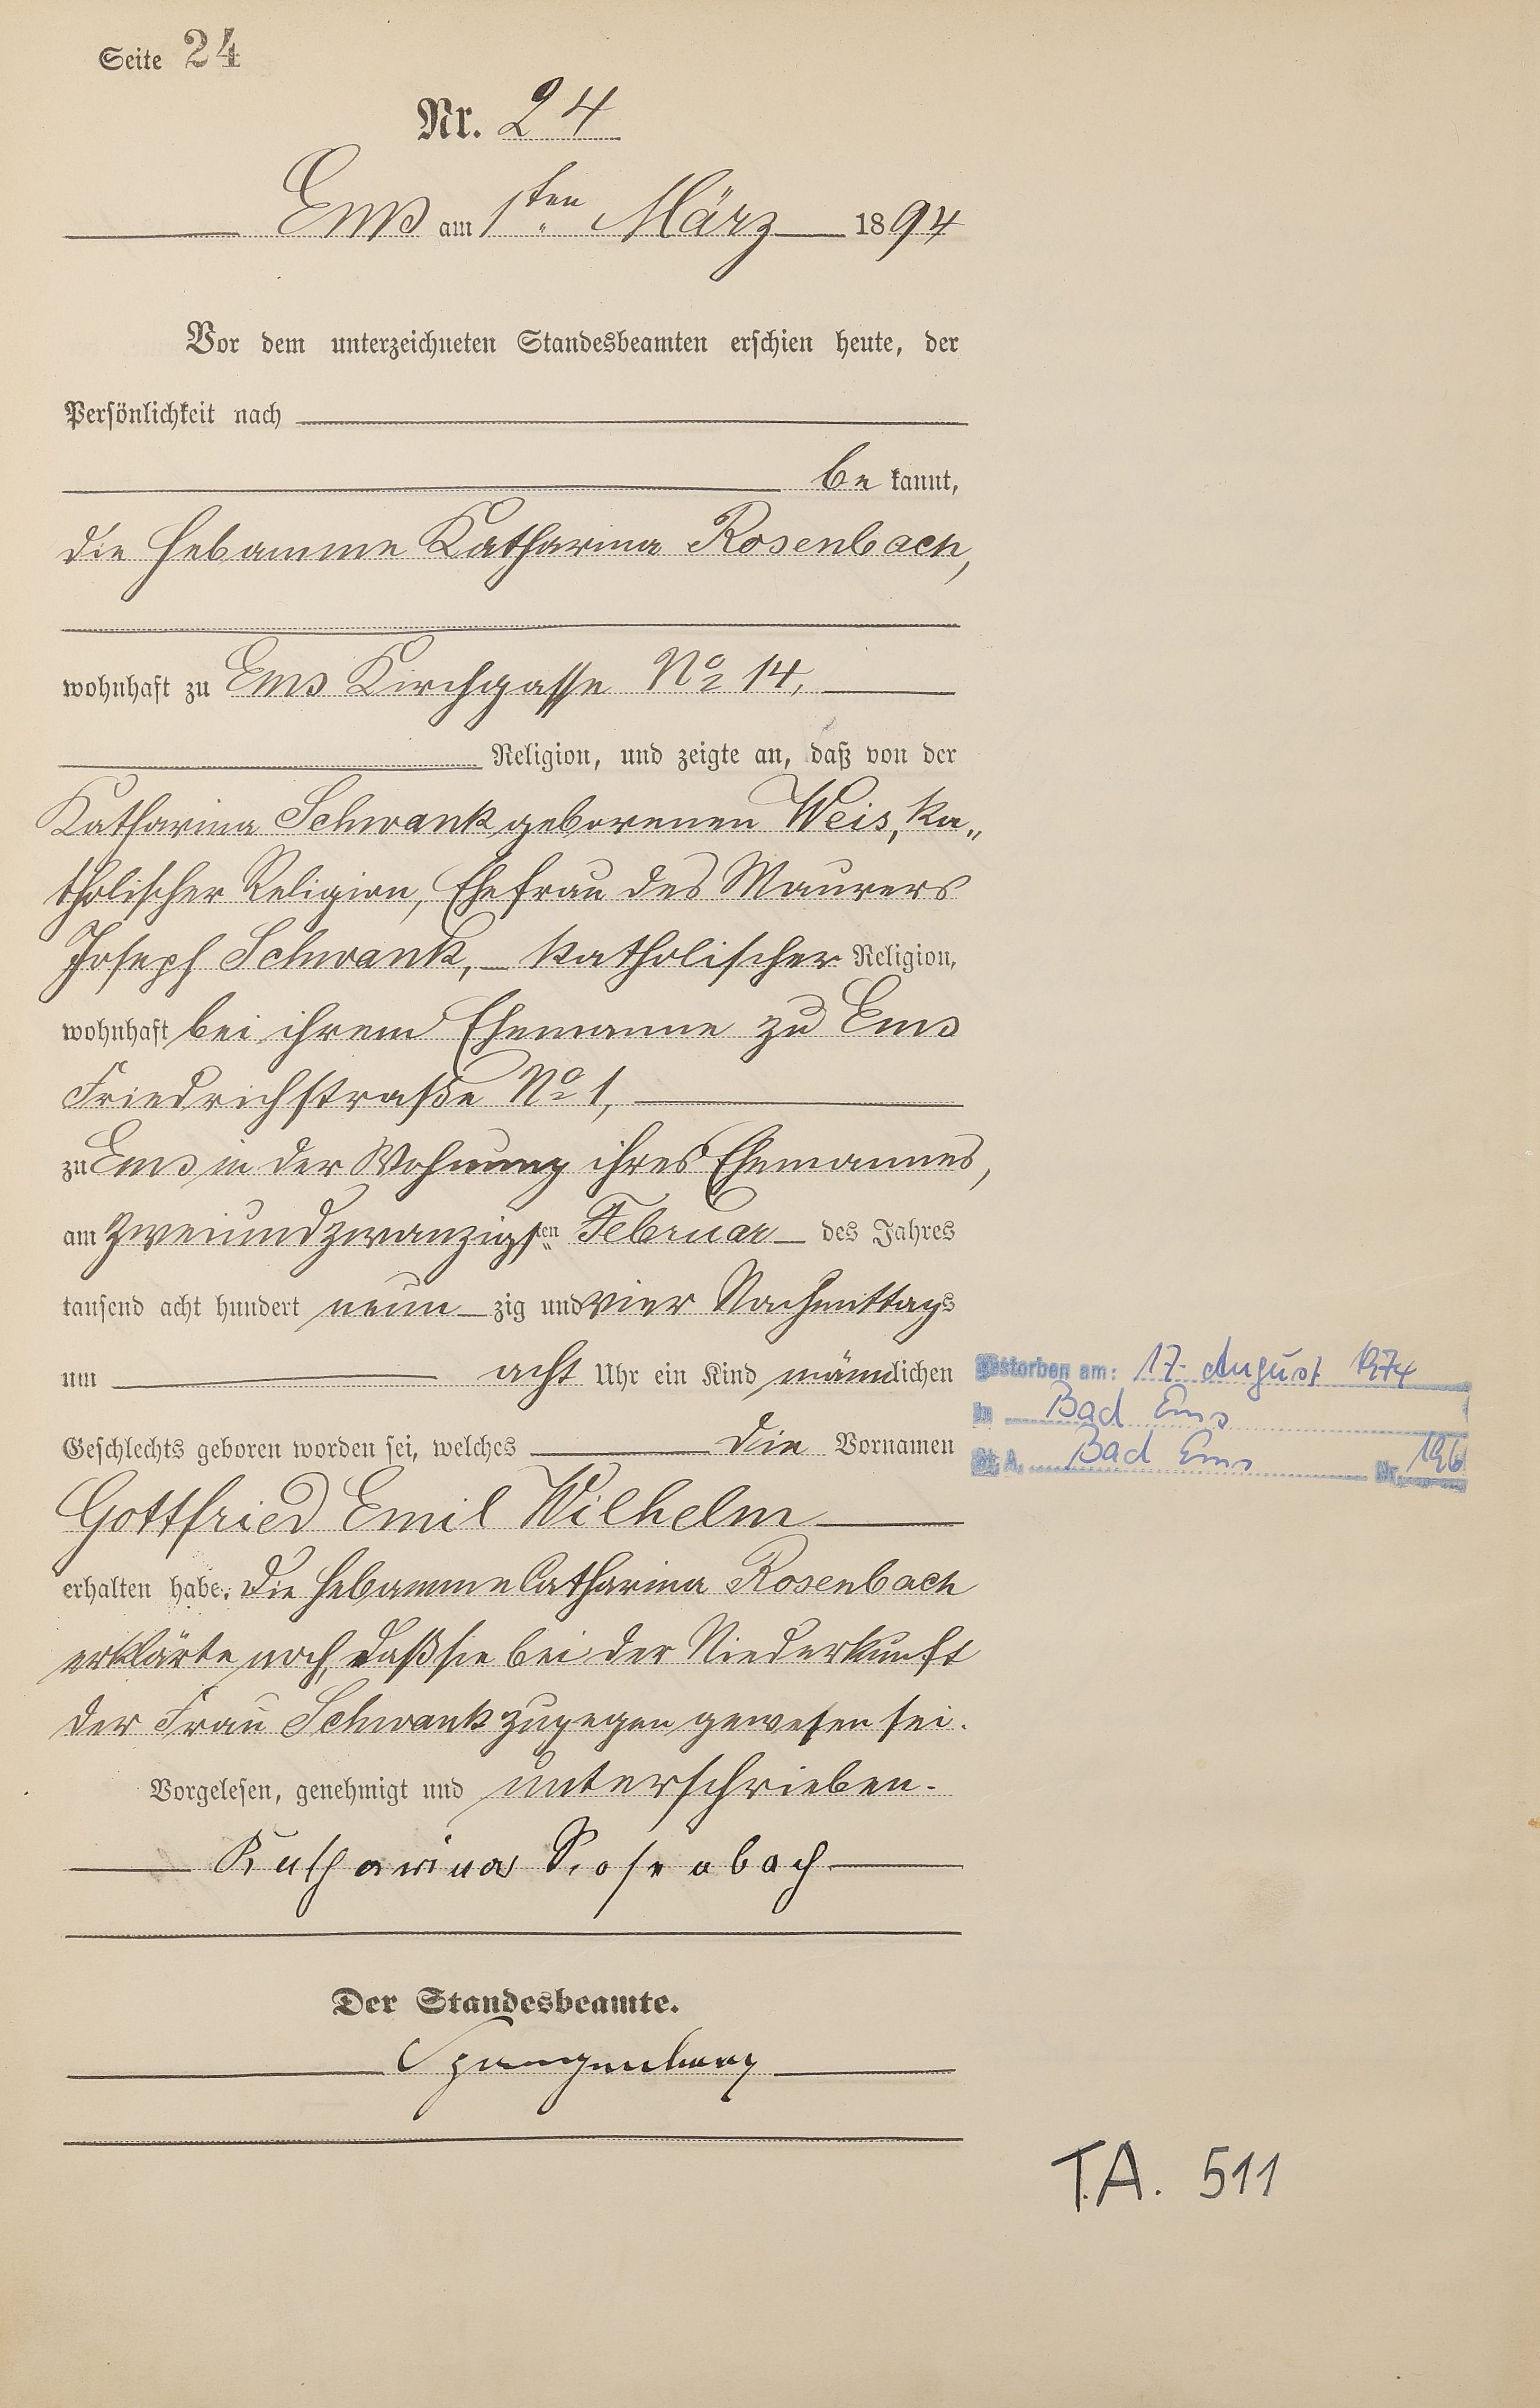 Seite 24
Nr. 24
Ems am 1ten März 1894
Vor dem unterzeichneten Standesbeamten erschien heute, der
Persönlichkeit nach
be kannt,
die Hebamme Katharina Rosenbach,
wohnhaft zu Ems Kirchgasse No 14,
Religion, und zeigte an, daß von der
Katharina Schwank geborenen Weis, ka„
tholischer Religion, Ehefrau des Maurers
Joseph Schwank, katholischer Religion,
wohnhaft bei ihrem Ehemanne zu Ems
Friedrichstraße No 1,
zu Ems in der Wohnung ihres Ehemannes,
am zweiundzwanzigsten Februar des Jahres
tausend acht hundert neun zig und vier Nachmittags
um acht Uhr ein Kind männlichen
Geschlechts geboren worden sei, welches die Vornamen
Gottfried Emil Wilhelm
erhalten habe. Die Hebamme Catharina Rosenbach
erklärte noch, daß sie bei der Niederkunft
der Frau Schwank zugegen gewesen sei.
Vorgelesen, genehmigt und unterschrieben.
Katharina Rosenbach
Der Standesbeamte.
Spangenberg
gestorben am: 17. August 1974
in Bad Ems
St. A. Bad Ems Nr. 196
T.A. 511